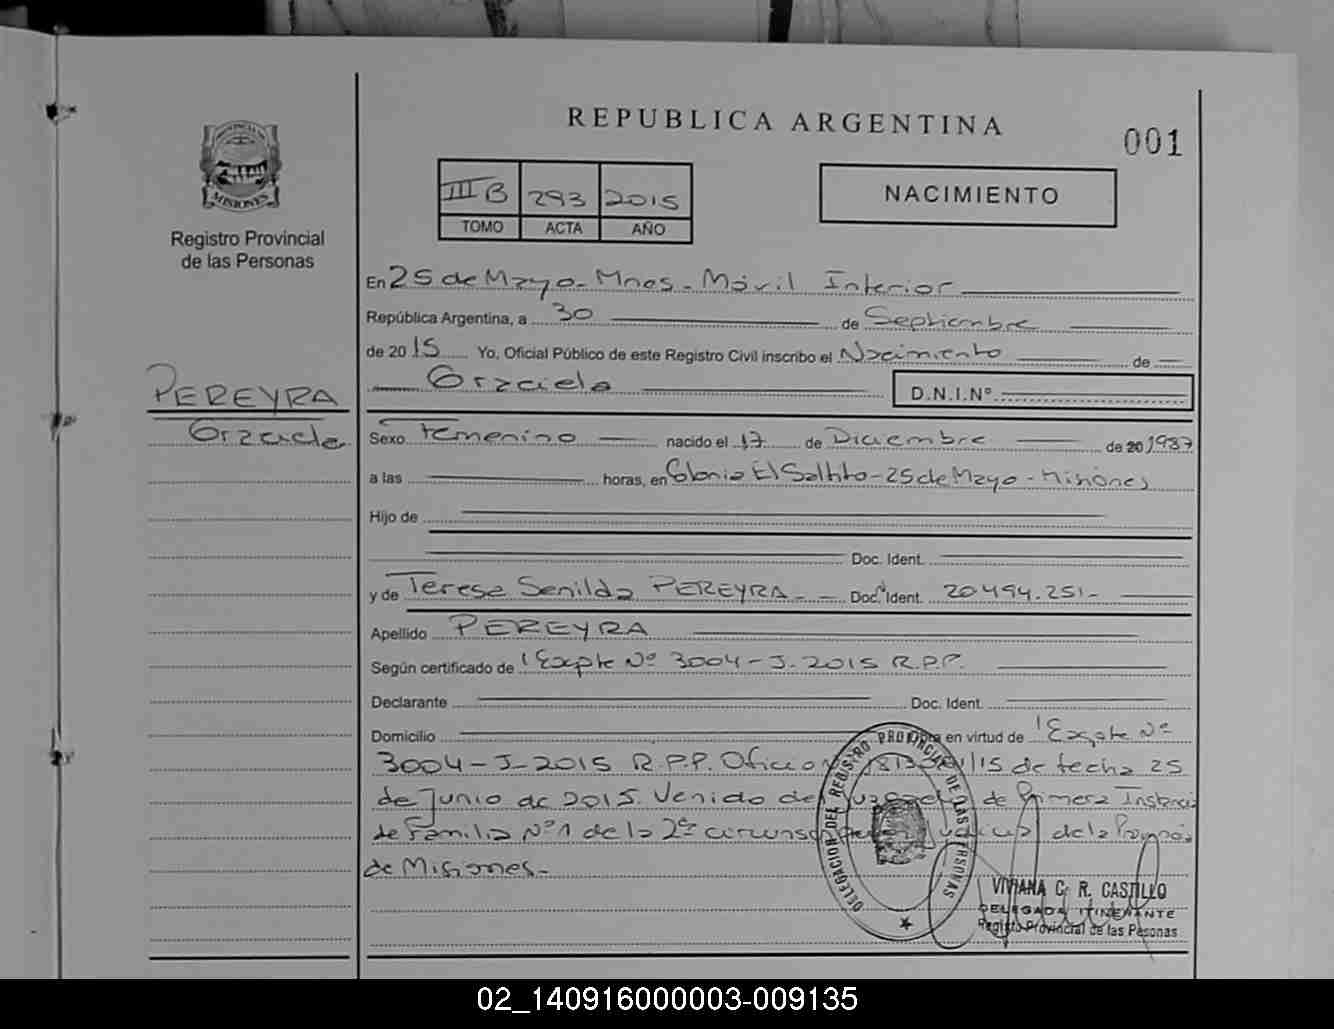 REPUBLICA ARGENTINA
001
PROVINCIA DE
MISIONES
Registro Provincial
de las Personas
III B 293 2015
TOMO ACTA AÑO
NACIMIENTO
En 25 de Mayo - Mnes - Móvil Interior
República Argentina, a 30 de Septiembre
de 2015 Yo, Oficial Público de este Registro Civil inscribo el Nacimiento de
Graciela D.N.I.Nº
PEREYRA
Graciela
Sexo Femenino nacido el 17 de Diciembre de 20 1987
a las horas, en Colonia El Saltito - 25 de Mayo - Misiones
Hijo de
Doc. Ident.
y de Teresa Senilda PEREYRA - - Doc. Ident. 20494.251-
Apellido PEREYRA
Según certificado de Expte Nº 3004-J-2015 R.P.P.
Declarante Doc. Ident.
Domicilio en virtud de Expte Nº
3004-J-2015 R.P.P. Oficio /15 de fecha 25
de Junio de 2015. Venido del Juzgado de Primera Instancia
de Familia Nº1 de la 2ª circunscripción Judicial de la Provincia
de Misiones-
DELEGACION DEL REGISTRO PROVINCIAL DE LAS PERSONAS
VIVIANA C. R. CASTILLO
DELEGADA ITINERANTE
Registro Provincial de las Pesonas
02_140916000003-009135